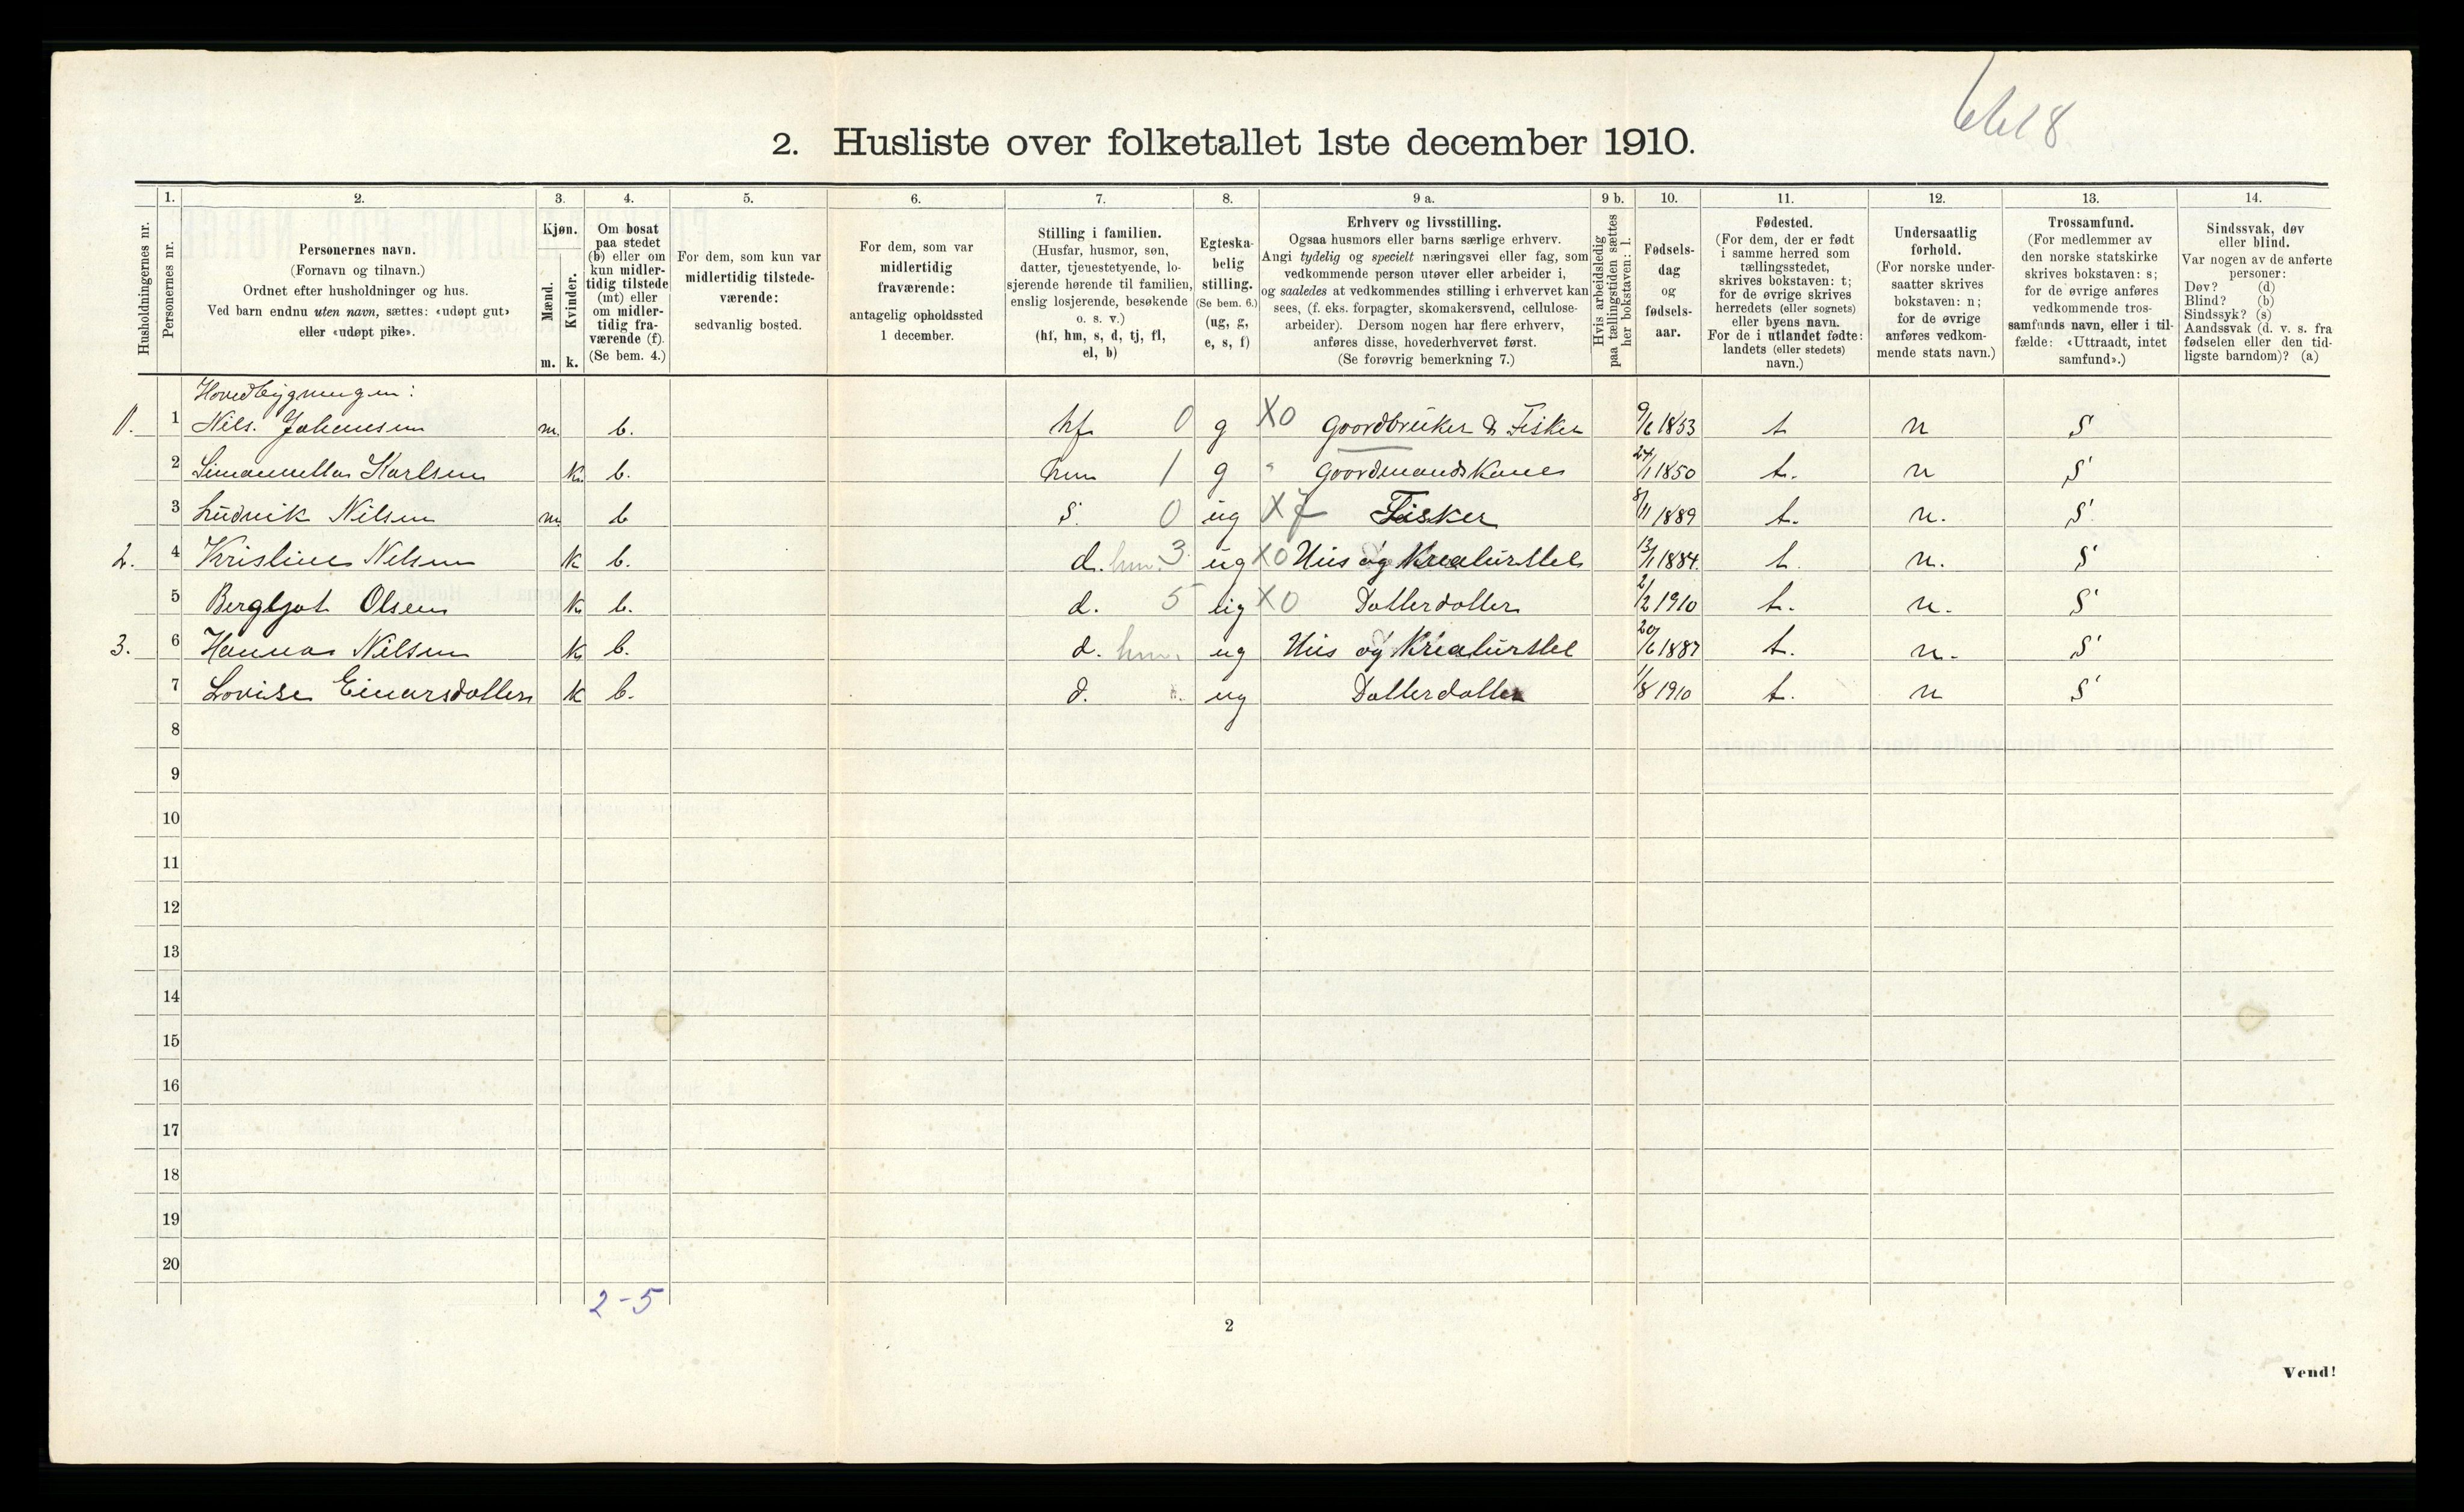 2. Husliste over folketallet 1ste december 1910.
Husholdningernes nr.
1.
Personernes nr.
2.
Personernes navn.
(Fornavn og tilnavn.)
Ordnet efter husholdninger og hus.
Ved barn endnu uten navn, sættes: «udøpt gut»
eller «udøpt pike».
3.
Kjøn.
Mænd.
Kvinder.
m. k.
4.
Om bosat
paa stedet
(b) eller om
kun midler-
tidig tilstede
(mt) eller
om midler-
tidig fra-
værende (f).
(Se bem. 4.)
5.
For dem, som kun var
midlertidig tilstede-
værende:
sedvanlig bosted.
6.
For dem, som var
midlertidig
fraværende:
antagelig opholdssted
1 december.
7.
Stilling i familien.
(Husfar, husmor, søn,
datter, tjenestetyende, lo-
sjerende hørende til familien,
enslig losjerende, besøkende
o. s. v.)
(hf, hm, s, d, tj, fl,
el, b)
8.
Egteska-
belig
stilling.
(Se bem. 6.)
(ug, g,
e, s, f)
9 a.
Erhverv og livsstilling.
Ogsaa husmors eller barns særlige erhverv.
Angi tydelig og specielt næringsvei eller fag, som
vedkommende person utøver eller arbeider i,
og saaledes at vedkommendes stilling i erhvervet kan
sees, (f. eks. forpagter, skomakersvend, cellulose-
arbeider). Dersom nogen har flere erhverv,
anføres disse, hovederhvervet først.
(Se forøvrig bemerkning 7.)
9 b.
Hvis arbeidsledig
paa tællingstiden sættes
her bokstaven: l.
10.
Fødsels-
dag
og
fødsels-
aar.
11.
Fødested.
(For dem, der er født
i samme herred som
tællingsstedet,
skrives bokstaven: t;
for de øvrige skrives
herredets (eller sognets)
eller byens navn.
For de i utlandet fødte:
landets (eller stedets)
navn.)
12.
Undersaatlig
forhold.
(For norske under-
saatter skrives
bokstaven: n;
for de øvrige
anføres vedkom-
mende stats navn.)
13.
Trossamfund.
(For medlemmer av
den norske statskirke
skrives bokstaven: s;
for de øvrige anføres
vedkommende tros-
samfunds navn, eller i til-
fælde: «Uttraadt, intet
samfund».)
14.
Sindssvak, døv
eller blind.
Var nogen av de anførte
personer:
Døv? (d)
Blind? (b)
Sindssyk? (s)
Aandssvak (d. v. s. fra
fødselen eller den tid-
ligste barndom)? (a)
Hovedbygningen:
1. 1 Nils. Johansen m. b. hf 0 g X0 Goordbruker & Fisker 9/6 1853 t n S
2 k. b. hm 1 g " Goordmandskone 24/1 1850 t. n S
3 Ludvik Nilsen m b s. 0 ug X7 Fisker 8/11 1889 t. n. S
2. 4 Kristine Nilsen k b. d. hm. 3 ug X0 Hus og Kreaturstel 13/1 1884. t. n. S
5 Bergljot Olsen k b. d. 5 ug X0 Datterdatter 2/2 1910 t. n. S
3. 6 Hanna Nilsen k b. d. hm. ug Hus og Kreaturstel 20/6 1887 t. n. S
7 Lovise Einarsdatter k b. d. ug Datterdatter 1/8 1910 t. n S
8
9
10
11
12
13
14
15
16
17
18
19
20
2-5
2
Vend!